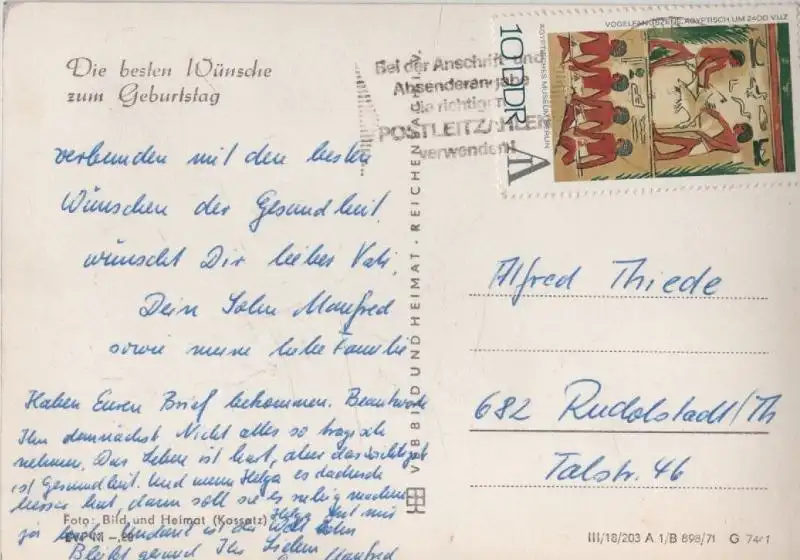 Die besten Wünsche
zum Geburtstag
verbunden mit den besten
Wünschen der Gesundheit
wünscht Dir lieber Vati,
Dein Sohn Manfred
sowie meine liebe Familie
Haben Euren Brief bekommen.
Ihn demnächst Nicht alles so tragisch
nehmen. Das Leben ist hart, aber das
ist Gesundheit. Und wenn Helga es dadurch
besser hat, dann soll sie es ruhig machen
Helga hat mir
ja
Bleibt gesund Ihr Lieben
Manfred
Foto: Bild und Heimat (Kossatz)
VEB BILD UND HEIMAT · REICHENBACH I. V.
Bei der Anschrift und
Absenderangabe
die richtigen
POSTLEITZAHLEN
verwenden!
VOGELFANGSZENE, ÄGYPTISCH UM 2400 V.U.Z.
ÄGYPTISCHES MUSEUM BERLIN
10 DDR
Alfred Thiede
682 Rudolstadt/Th
Talstr. 46
III/18/203 A 1/B 898/71 G 74/1